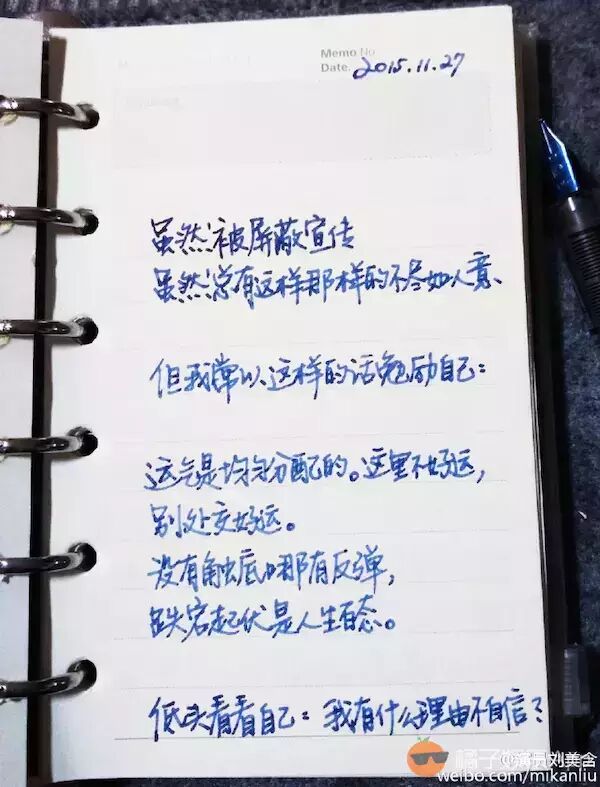 Memo No
Date. 2015.11.27
虽然被屏蔽宣传
虽然总有这样那样的不尽如人意、
但我常以这样的话勉励自己：
运气是均匀分配的。这里不好运，
别处交好运。
没有触底哪有反弹，
跌宕起伏是人生百态。
低头看看自己：我有什么理由不自信？
橘子
@演员刘美含
weibo.com/mikanliu